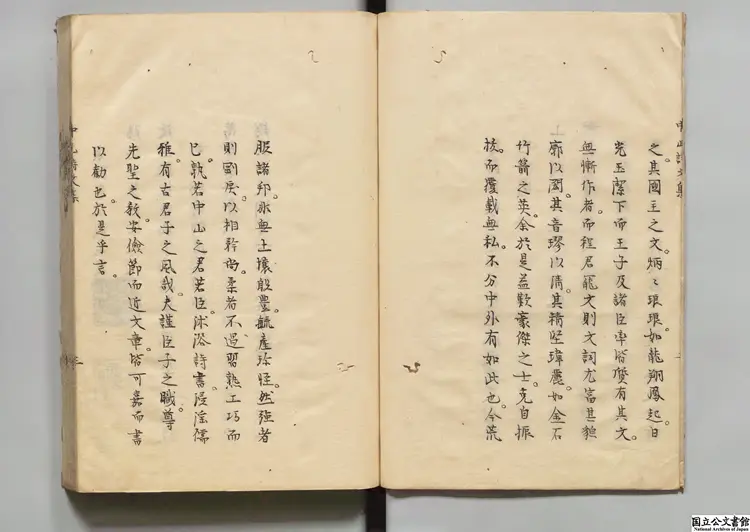 之其國王之文炳々琅琅如龍翔鳳起日
光玉潔下而王子及諸臣率皆質有其文
無慚作者而程君寵文則文詞尤富其
廓以閎其音璆以清其精堅瑋麗如金石
竹箭之英余於是益歎豪傑之士克自振
拔而覆載無私不分中外有如此也今荒
服諸邦永無土壤殷豐毓產珍怪然強者
則剛戾以相矜尚柔者不過習熟工巧而
已孰若中山之君若臣沐浴詩書浸淫儒
雅有古君子之風哉夫謹臣子之職尊
先聖之教安儉節而近文章皆可嘉而書
以勸也於是乎言
中山詩文集
国立公文書館
National Archives of Japan